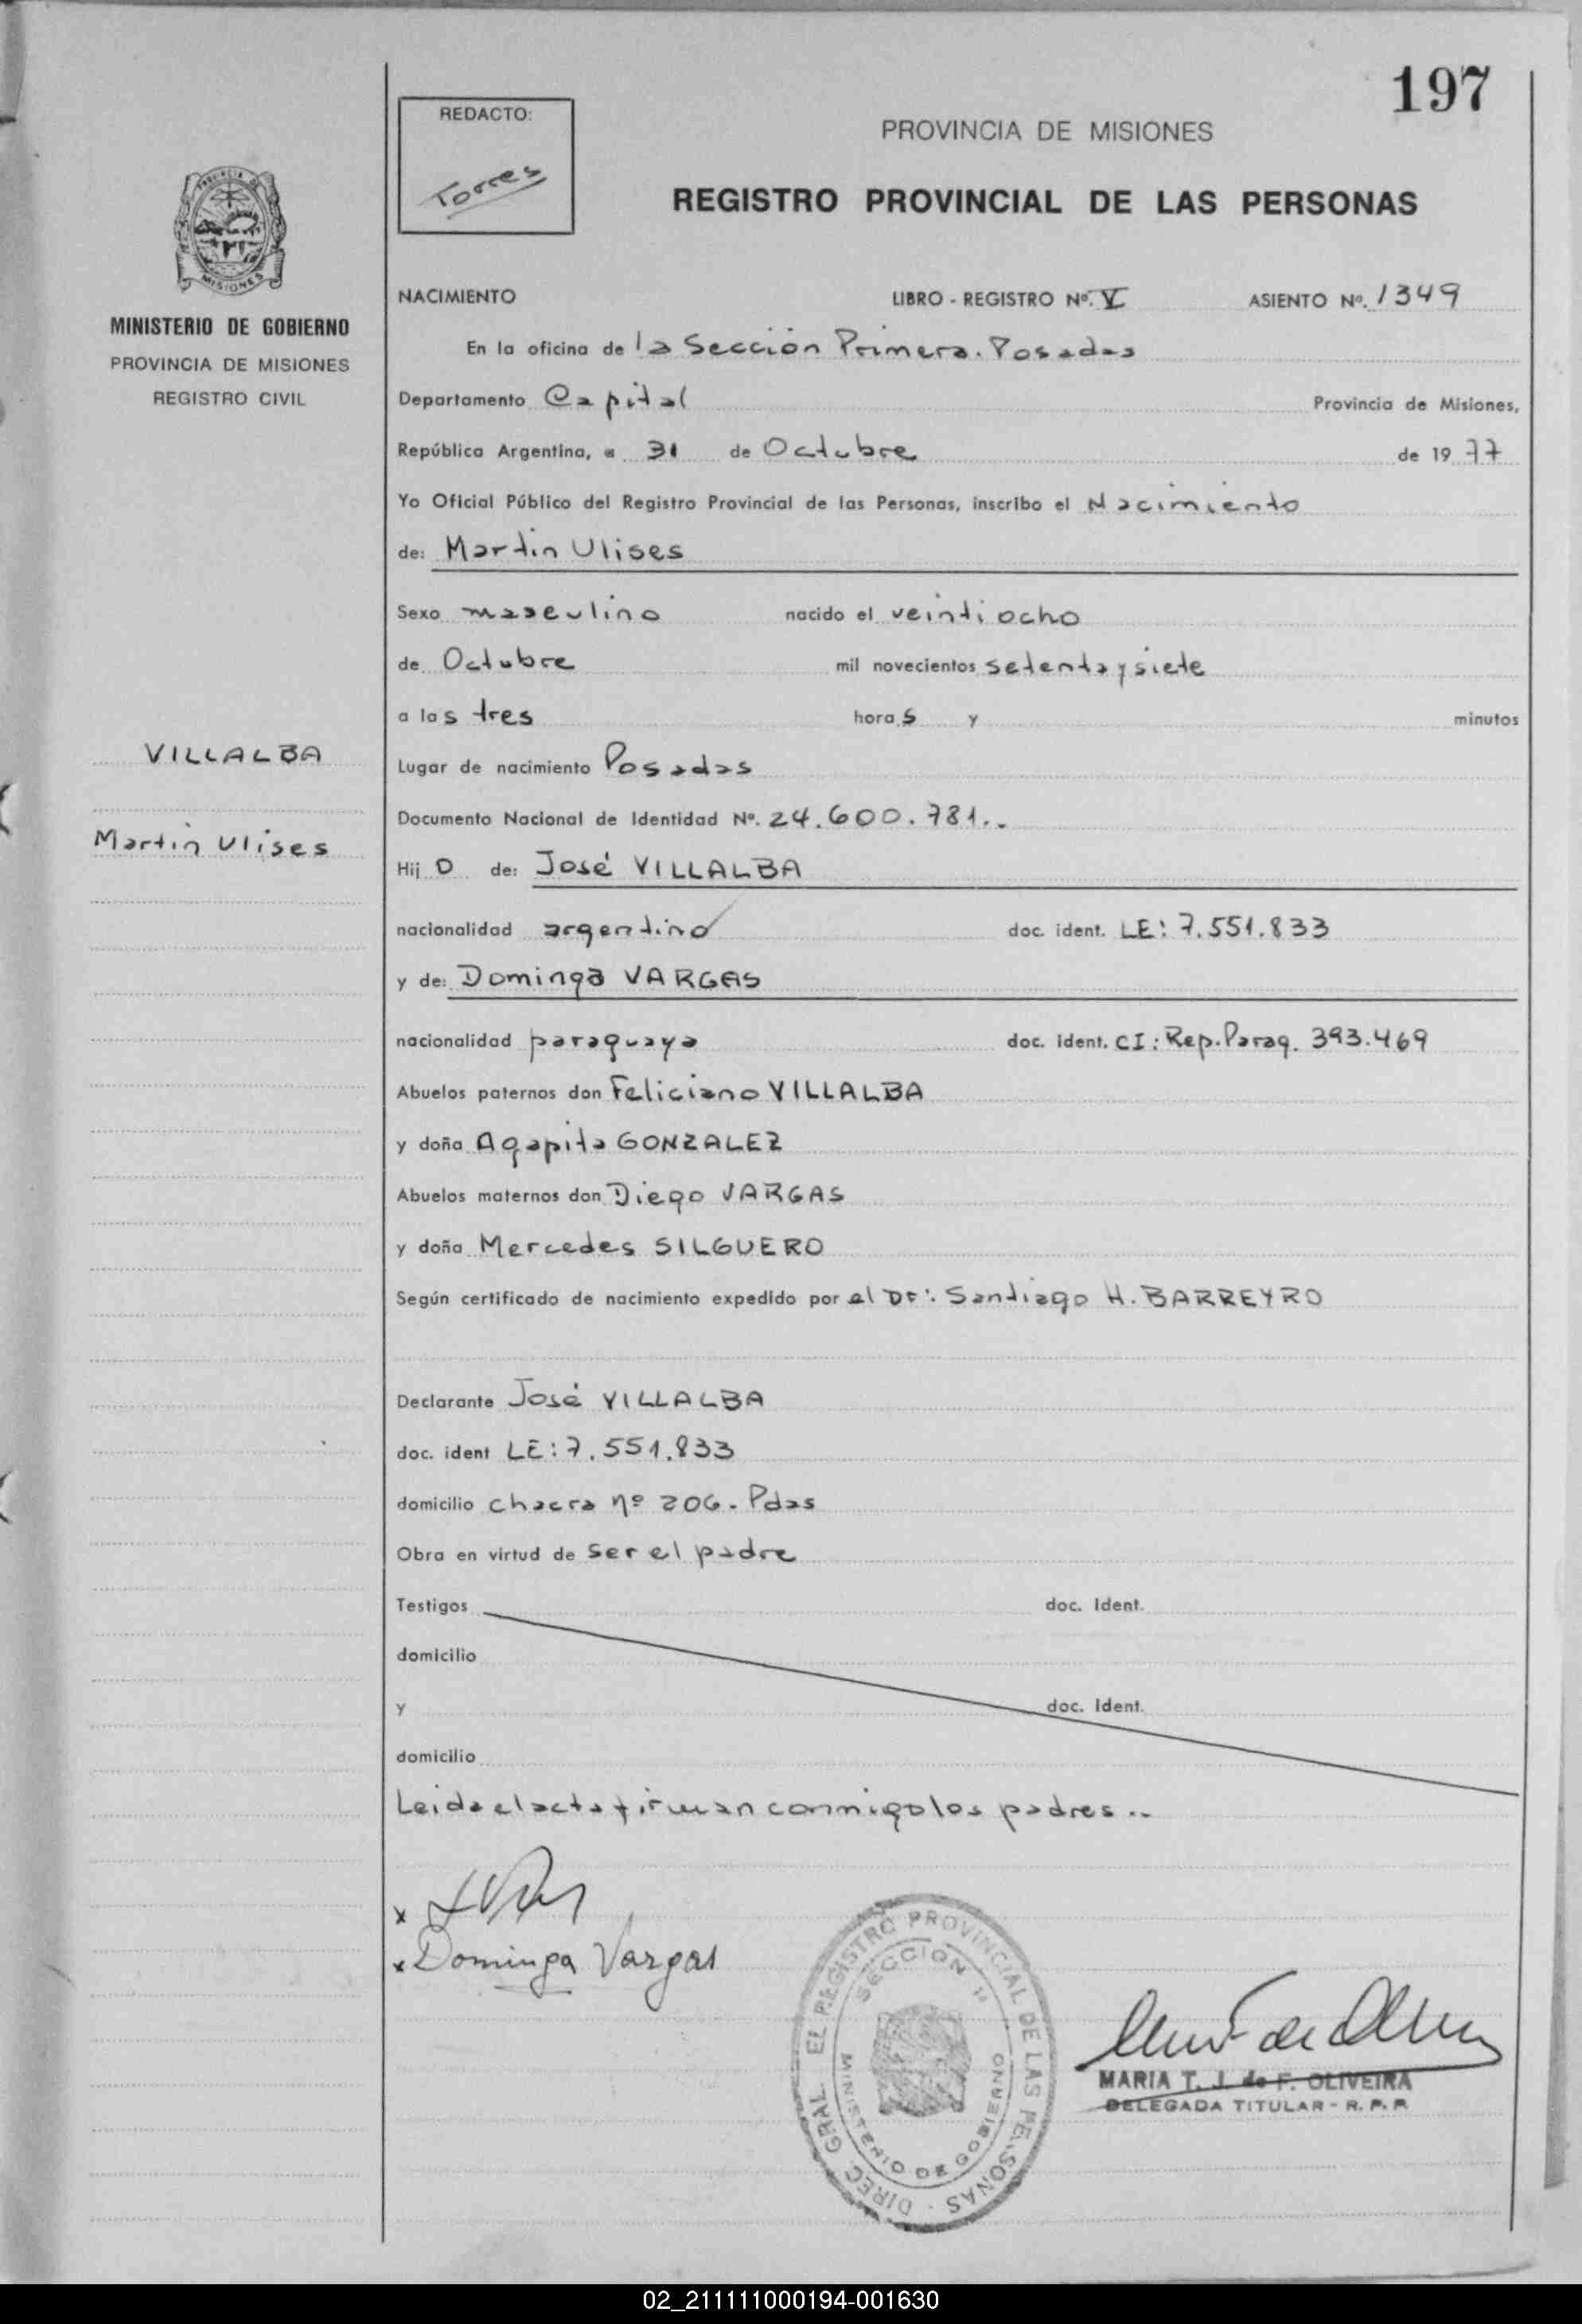 197
REDACTO:
Torres
PROVINCIA DE MISIONES
REGISTRO PROVINCIAL DE LAS PERSONAS
PROVINCIA DE
MISIONES
MINISTERIO DE GOBIERNO
PROVINCIA DE MISIONES
REGISTRO CIVIL
NACIMIENTO LIBRO - REGISTRO Nº. V ASIENTO Nº. 1349
En la oficina de la Sección Primera. Posadas
Departamento Capital Provincia de Misiones,
República Argentina, a 31 de Octubre de 1977
Yo Oficial Público del Registro Provincial de las Personas, inscribo el Nacimiento
de: Martin Ulises
Sexo masculino nacido el veintiocho
de Octubre mil novecientos setenta y siete
a las tres horas y minutos
VILLALBA
Martin Ulises
Lugar de nacimiento Posadas
Documento Nacional de Identidad Nº. 24.600.781..
Hijo de: José VILLALBA
nacionalidad argentino doc. ident. LE: 7.551.833
y de: Dominga VARGAS
nacionalidad paraguaya doc. ident. CI: Rep. Parag. 393.469
Abuelos paternos don Feliciano VILLALBA
y doña Agapita GONZALEZ
Abuelos maternos don Diego VARGAS
y doña Mercedes SILGUERO
Según certificado de nacimiento expedido por el Dr: Santiago H. BARREYRO
Declarante José VILLALBA
doc. ident LE: 7.551.833
domicilio chacra nº 206 - Pdas
Obra en virtud de ser el padre
Testigos doc. ident.
domicilio
y doc. ident.
domicilio
Leida el acta firman conmigo los padres..
x
x Dominga Vargas
DIREC. GRAL. EL REGISTRO PROVINCIAL DE LAS PERSONAS
SECCION 1ª
MINISTERIO DE GOBIERNO
MARIA T. J. de F. OLIVEIRA
DELEGADA TITULAR - R. P. P.
02_211111000194-001630